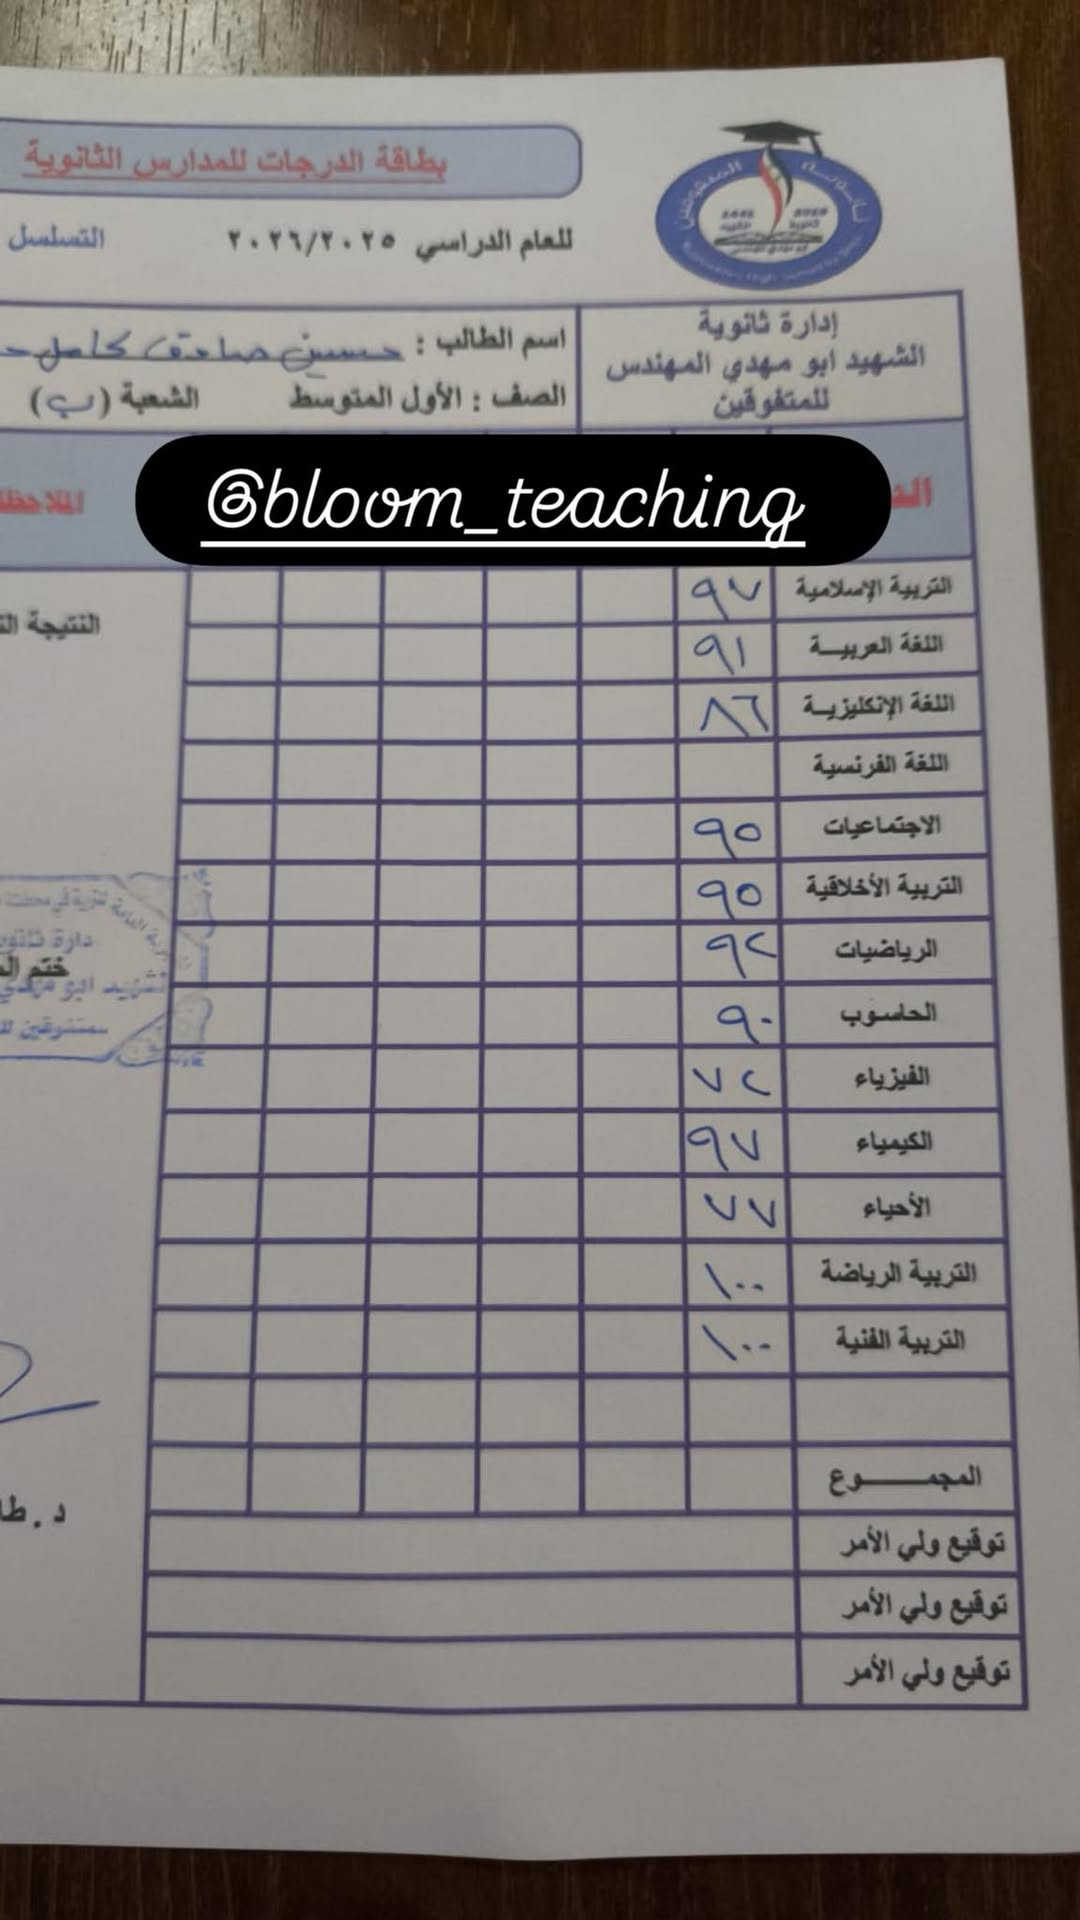 بطاقة الدرجات للمدارس الثانوية
للعام الدراسي ٢٠٢٦/٢٠٢٥ التسلسل
إدارة ثانوية
الشهيد ابو مهدي المهندس
للمتفوقين
اسم الطالب : حسين صادق كامل
الصف : الأول المتوسط الشعبة (ب)
@bloom_teaching
التربية الإسلامية ٩٧
اللغة العربيـــة ٩١
اللغة الإنكليزيــة ٨٦
اللغة الفرنسية
الاجتماعيات ٩٥
التربية الأخلاقية ٩٥
الرياضيات ٩٢
الحاسوب ٩٠
الفيزياء ٧٢
الكيمياء ٩٧
الأحياء ٧٧
التربية الرياضة ١٠٠
التربية الفنية ١٠٠
المجمـــــــوع
توقيع ولي الأمر
توقيع ولي الأمر
توقيع ولي الأمر
النتيجة
ختم
د . طا